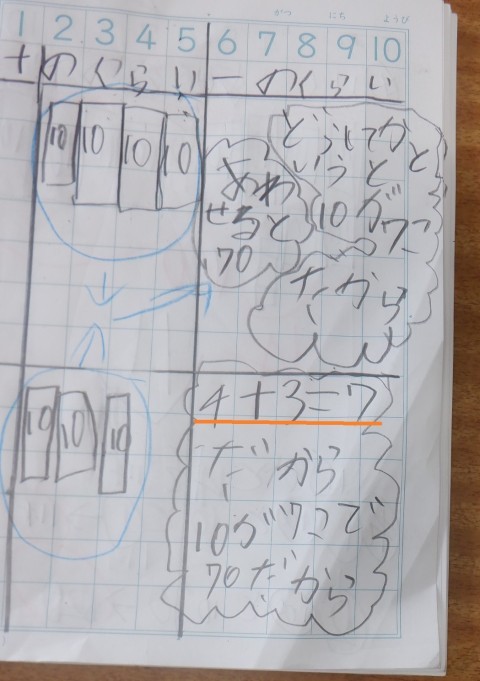 がつ にち ようび
1 2 3 4 5 6 7 8 9 10
十のくらい 一のくらい
10 10 10 10
あわ
せると
70
いうと
10が7こ
だから
10 10 10
4+3=7
だから
10が7こで
70だから